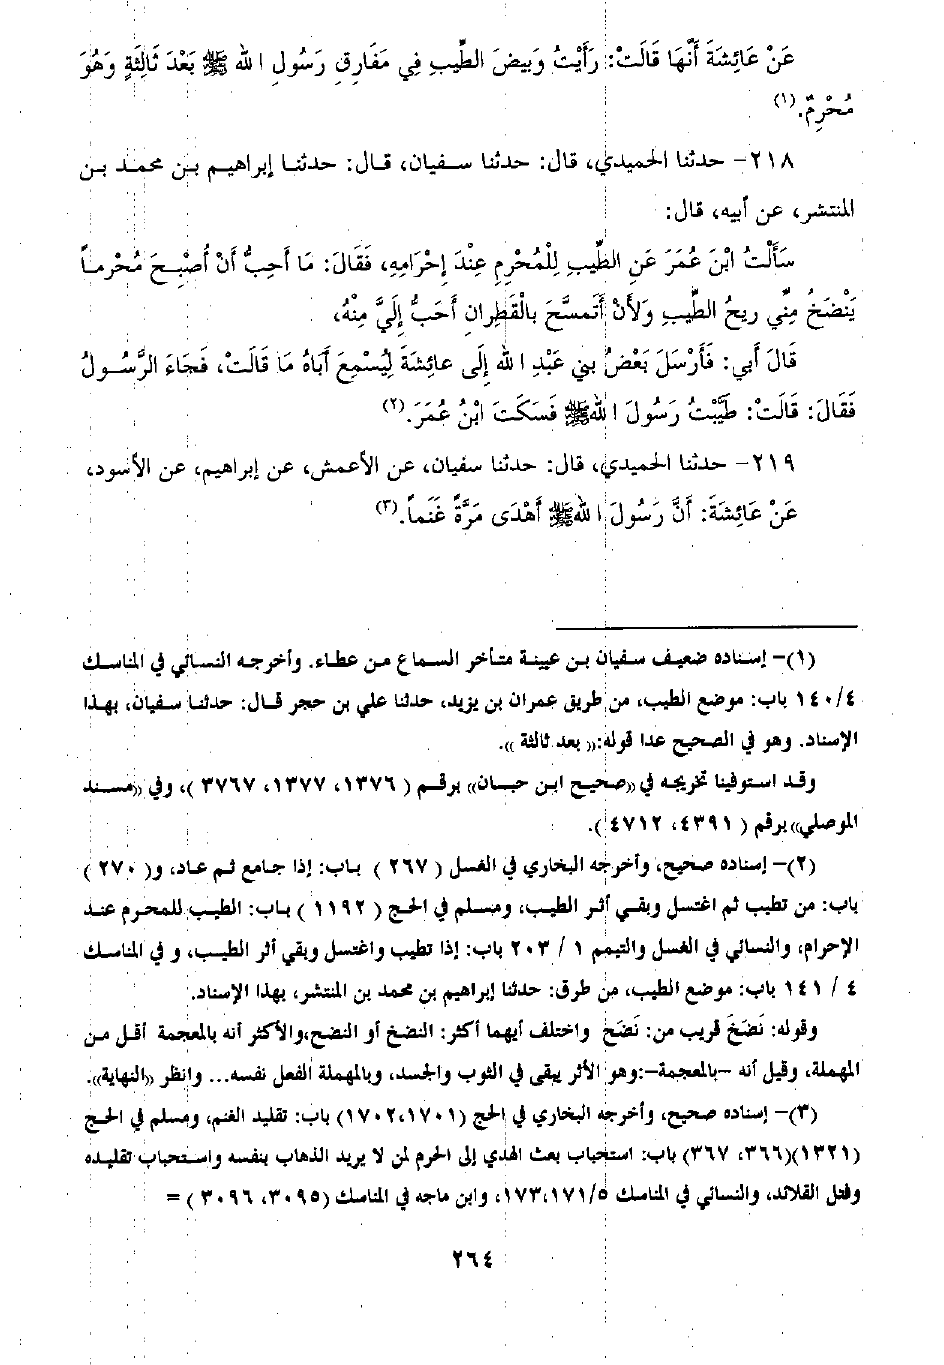 عَنْ عَائِشَةَ أَنَّهَا قَالَتْ: رَأَيْتُ وَبِيضَ الطِّيبِ فِي مَفَارِقِ رَسُولِ الله ﷺ بَعْدَ ثَالِثَةٍ وَهُوَ
مُحْرِمٌ.(١)
٢١٨- حدثنا الحميدي، قال: حدثنا سفيان، قال: حدثنا إبراهيم بن محمد بن
المنتشر، عن أبيه، قال:
سَأَلْتُ ابْنَ عُمَرَ عَنِ الطِّيبِ لِلْمُحْرِمِ عِنْدَ إِحْرَامِهِ، فَقَالَ: مَا أُحِبُّ أَنْ أُصْبِحَ مُحْرِماً
يَنْضَخُ مِنِّي رِيحُ الطِّيبِ وَلَأَنْ أَتَمسَّحَ بالْقَطِرانِ أَحَبُّ إِلَيَّ مِنْهُ،
قَالَ أَبي: فَأَرْسَلَ بَعْضُ بني عَبْدِ الله إِلَى عائِشَةَ لِيُسْمِعَ أَبَاهُ مَا قَالَتْ، فَجَاءَ الرَّسُولُ
فَقَالَ: قَالَتْ: طَيَّبْتُ رَسُولَ اللهﷺ فَسَكَتَ ابْنُ عُمَرَ.(٢)
٢١٩- حدثنا الحميدي، قال: حدثنا سفيان، عن الأعمش، عن إبراهيم، عن الأسود،
عَنْ عَائِشَةَ: أَنَّ رَسُولَ اللهﷺ أَهْدَى مَرَّةً غَنَماً.(٣)
(١)- إسناده ضعيف سفيان بن عيينة متأخر السماع من عطاء. وأخرجه النسائي في المناسك
١٤٠/٤ باب: موضع الطيب، من طريق عمران بن يزيد، حدثنا علي بن حجر قال: حدثنا سفيان، بهذا
الإسناد. وهو في الصحيح عدا قوله:« بعد ثالثة ».
وقد استوفينا تخريجه في «صحيح ابن حبان» برقم ( ١٣٧٦، ١٣٧٧، ٣٧٦٧ )، وفي «مسند
الموصلي» برقم ( ٤٣٩١، ٤٧١٢ ).
(٢)- إسناده صحيح، وأخرجه البخاري في الغسل ( ٢٦٧ ) باب: إذا جامع ثم عاد، و( ٢٧٠ )
باب: من تطيب ثم اغتسل وبقي أثر الطيب، ومسلم في الحج ( ١١٩٢ ) باب: الطيب للمحرم عند
الإحرام، والنسائي في الغسل والتيمم ١ / ٢٠٣ باب: إذا تطيب واغتسل وبقي أثر الطيب، و في المناسك
٤ / ١٤١ باب: موضع الطيب، من طرق: حدثنا إبراهيم بن محمد بن المنتشر، بهذا الإسناد.
وقوله: نَضَخَ قريب من: نَضَحَ واختلف أيهما أكثر: النضخ أو النضح،والأكثر أنه بالمعجمة أقل من
المهملة، وقيل أنه -بالمعجمة-:وهو الأثر يبقى في الثوب والجسد، وبالمهملة الفعل نفسه... وانظر «النهاية».
(٣)- إسناده صحيح، وأخرجه البخاري في الحج (١٧٠١،١٧٠٢) باب: تقليد الغنم، ومسلم في الحج
(١٣٢١)(٣٦٦، ٣٦٧) باب: استحباب بعث الهدي إلى الحرم لمن لا يريد الذهاب بنفسه واستحباب تقليده
وفتل القلائد، والنسائي في المناسك ١٧٣،١٧١/٥، وابن ماجه في المناسك (٣٠٩٥، ٣٠٩٦ ) =
٢٦٤